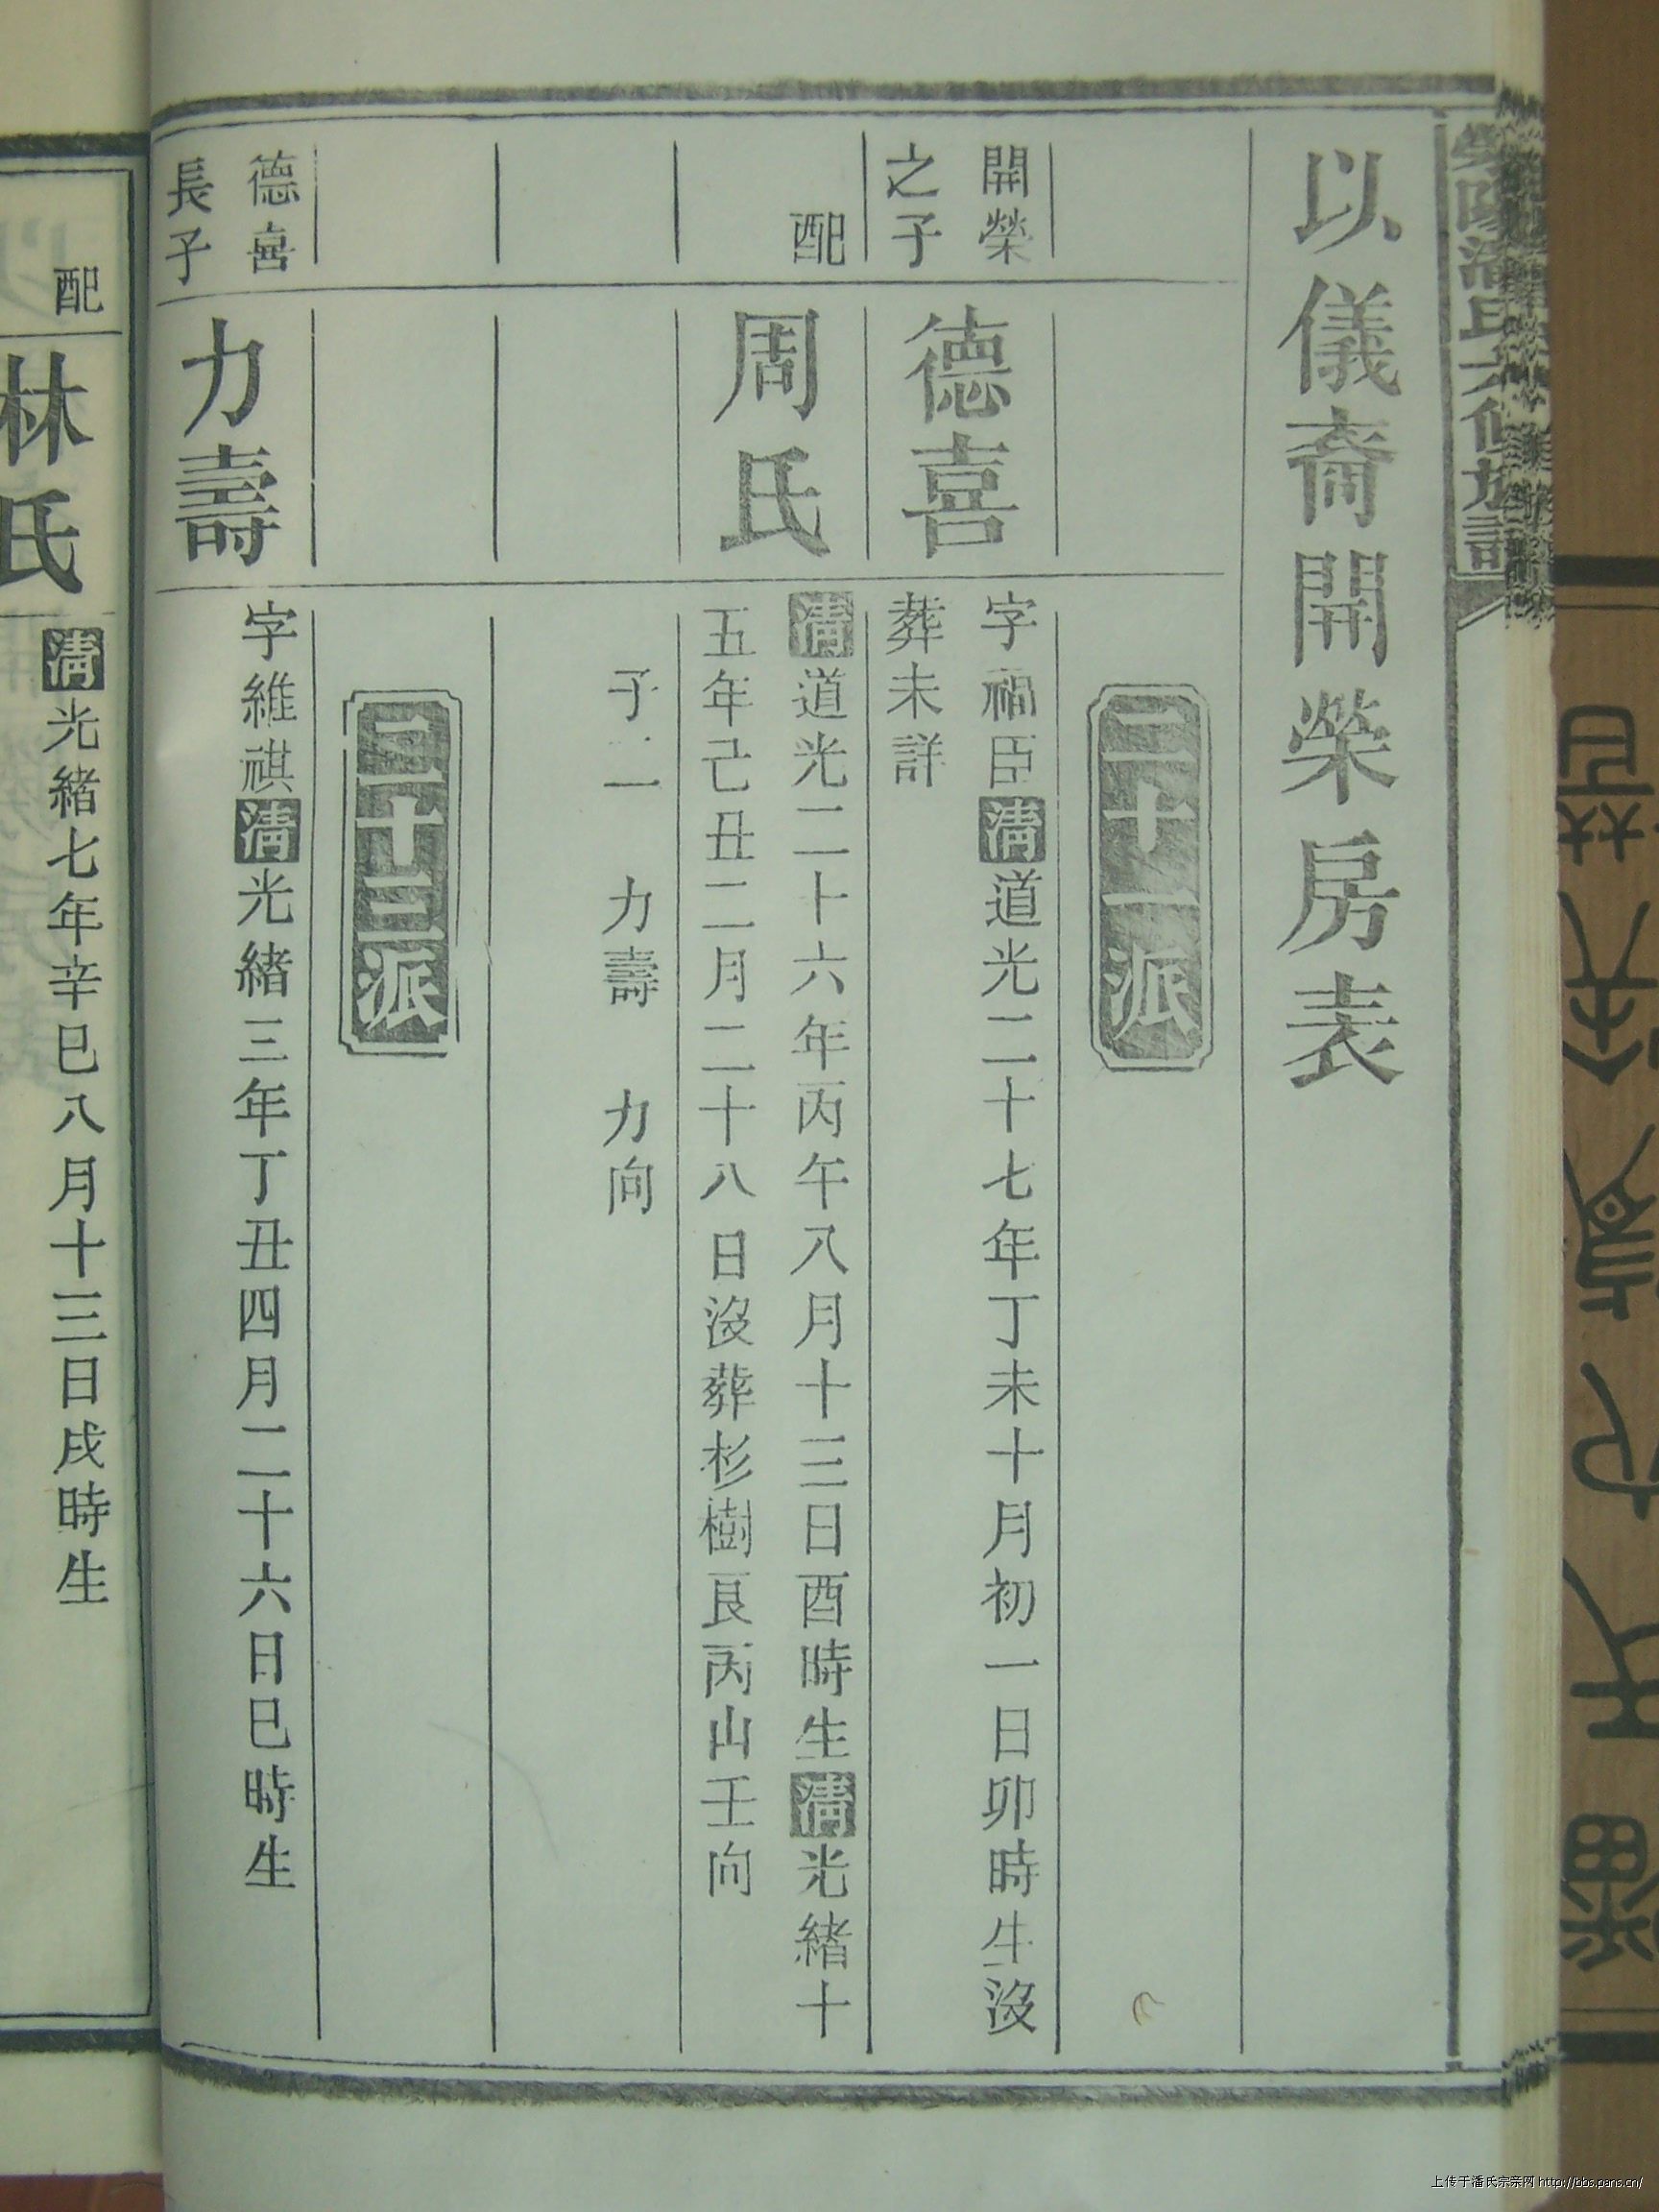 滎陽潘氏六修族譜
以儀裔開榮房表
三十一派
開榮之子
德喜
字福臣清道光二十七年丁未十月初一日卯時生沒
葬未詳
配
周氏
清道光二十六年丙午八月十三日酉時生清光緒十
五年己丑二月二十八日沒葬杉樹艮丙山壬向
子二 力壽 力向
三十二派
德喜長子
力壽
字維祺清光緒三年丁丑四月二十六日巳時生
配
林氏
清光緒七年辛巳八月十三日戌時生
上传于潘氏宗亲网 http://bbs.pans.cn/